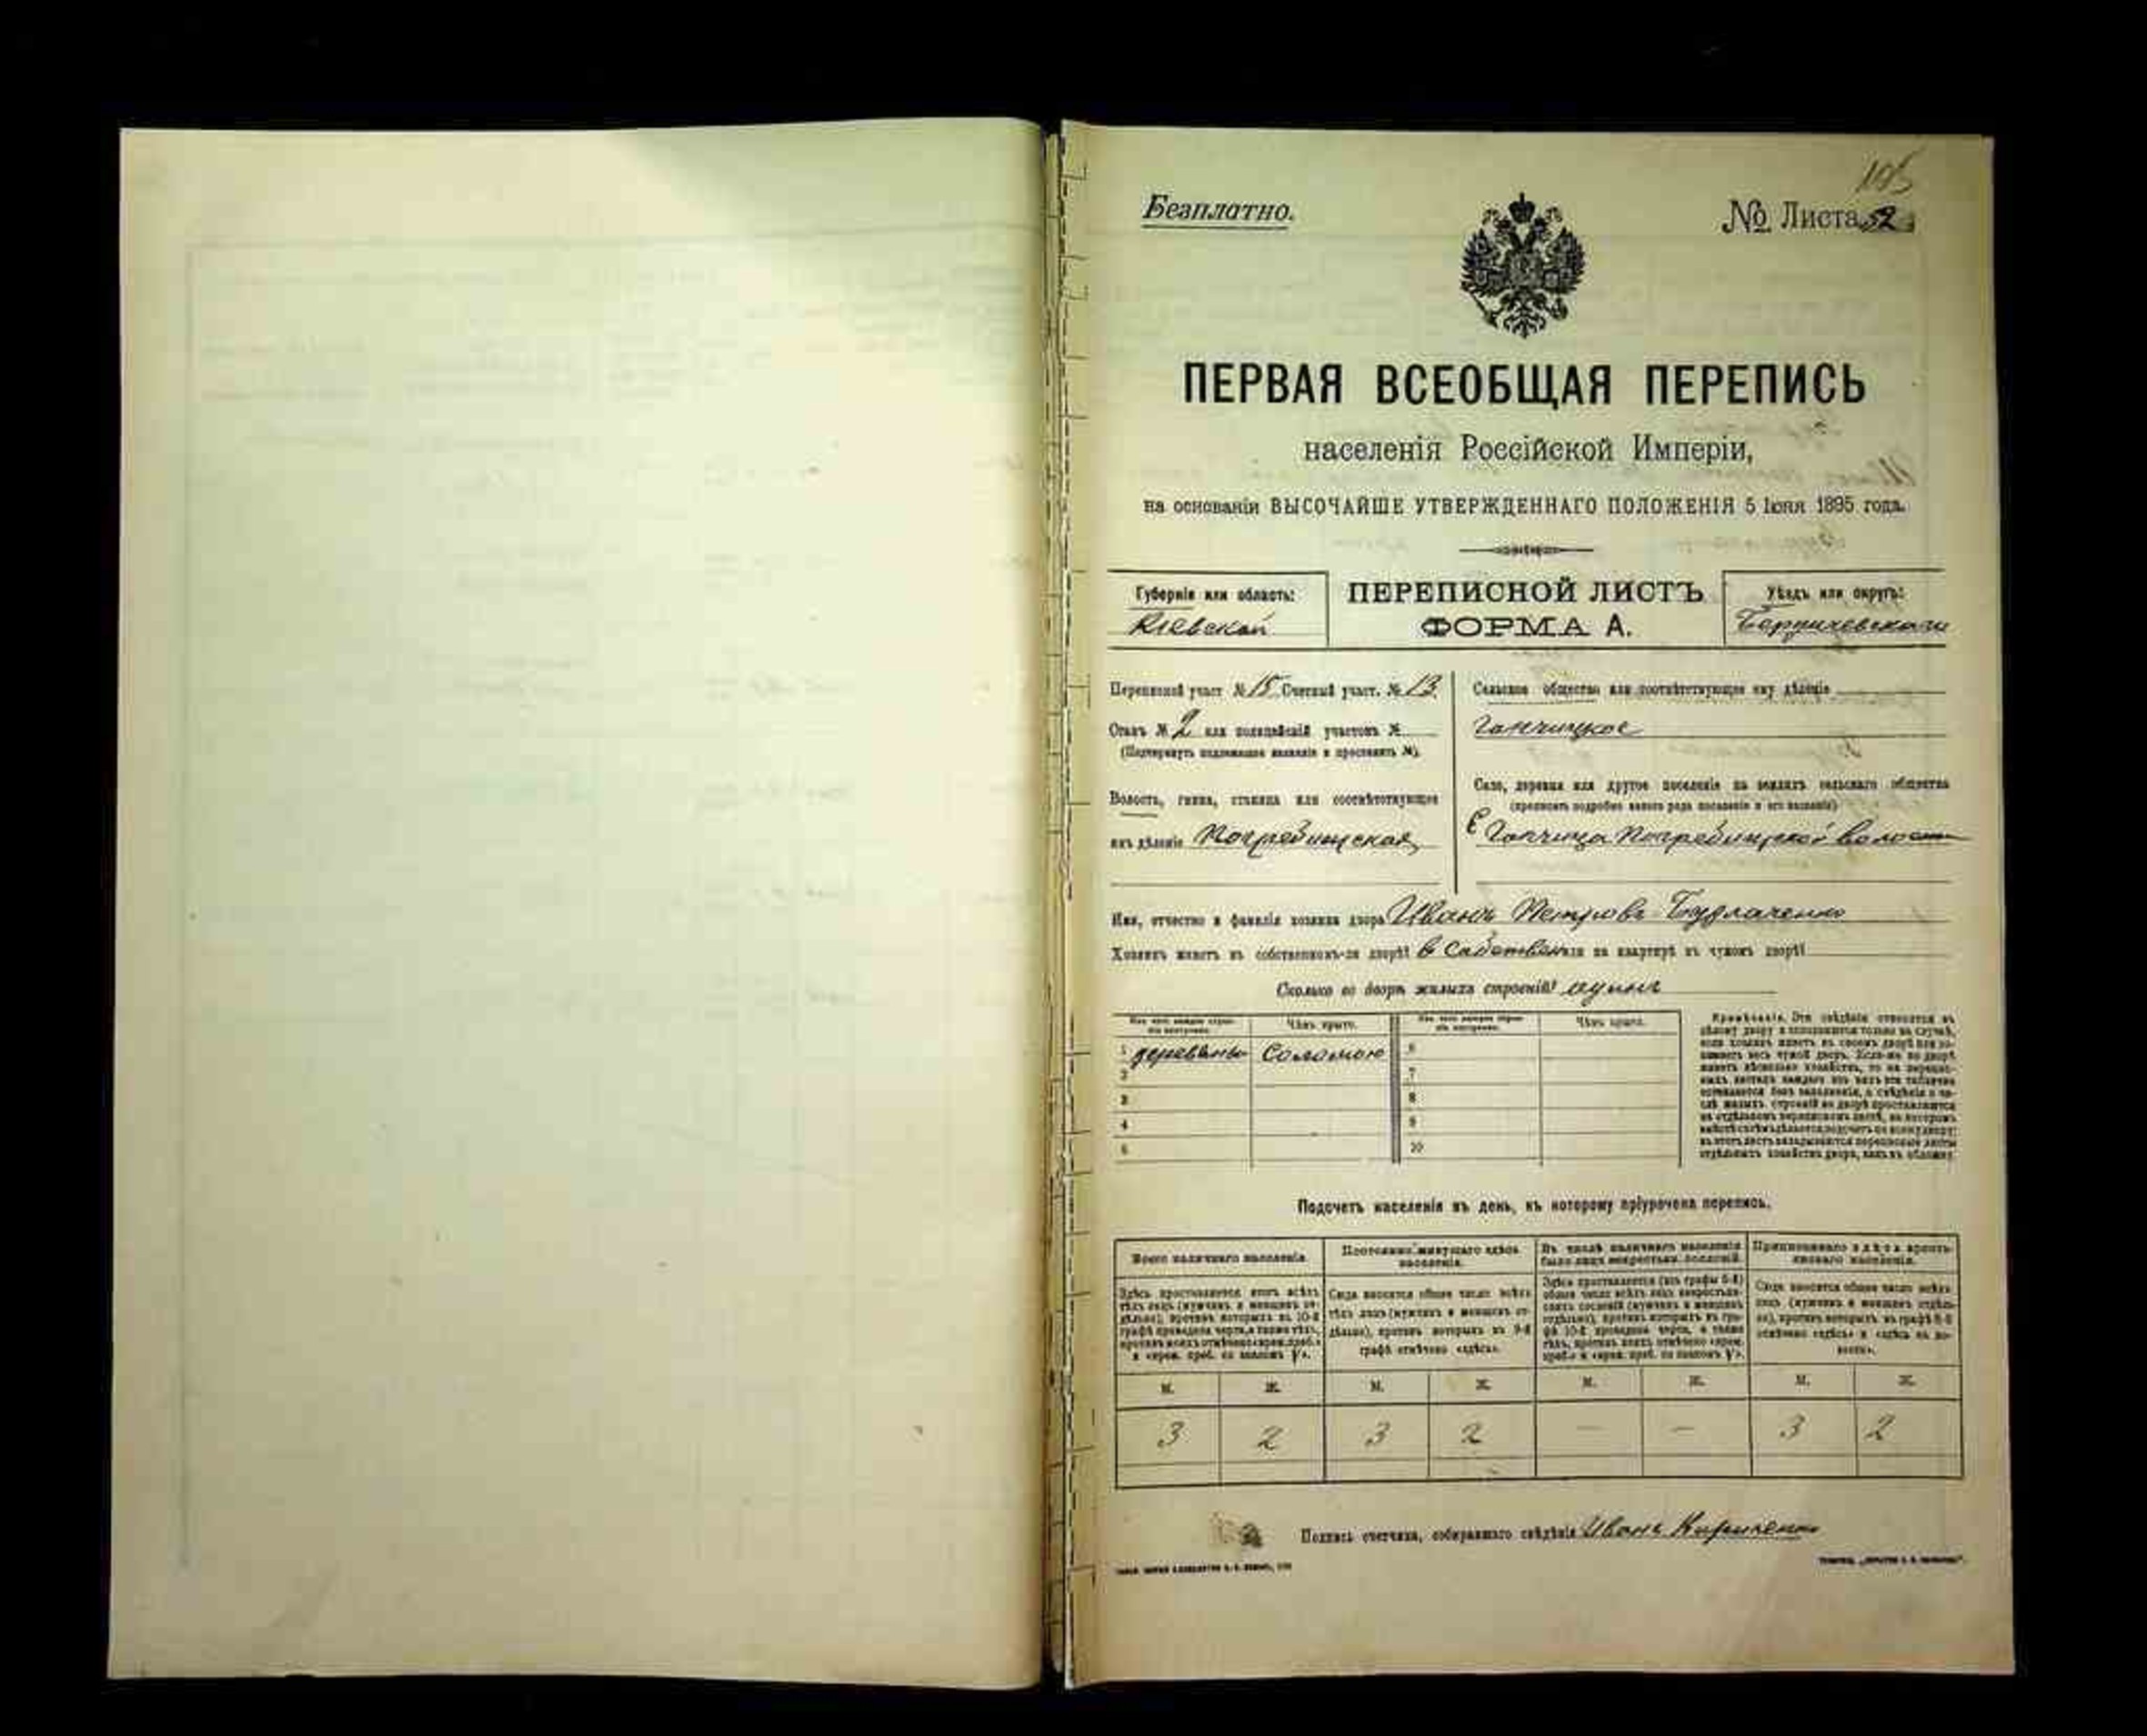 105
Безплатно.
№ Листа 52
ПЕРВАЯ ВСЕОБЩАЯ ПЕРЕПИСЬ
населенія Россійской Имперіи,
на основаніи ВЫСОЧАЙШЕ УТВЕРЖДЕННАГО ПОЛОЖЕНІЯ 5 Іюня 1895 года.
Губернія или область:
Кіевской
ПЕРЕПИСНОЙ ЛИСТЪ
ФОРМА А.
Уѣздъ или округъ:
Бердичевскаго
Переписной участ. № 15 Счетный участ. № 13
Станъ № 2 или полицейскій участокъ №
(Подчеркнуть подлежащее названіе и проставить №).
Волость, гмина, станица или соотвѣтствующее
имъ дѣленіе Погребищская
Сельское общество или соотвѣтствующее ему дѣленіе
Ганчицкое
Село, деревня или другое поселеніе на земляхъ сельскаго общества
(прописать подробно какого рода поселеніе и его названіе)
С Ганчица Погребищской волости
Имя, отчество и фамилія хозяина двора Иванъ Петровъ
Хозяинъ живетъ въ собственномъ-ли дворѣ? в или на квартирѣ въ чужомъ дворѣ?
Сколько во дворѣ жилыхъ строеній? одинъ
Изъ чего каждое строеніе построено.
Чѣмъ крыто.
Изъ чего каждое строеніе построено.
Чѣмъ крыто.
1 Соломою 6
2 7
3 8
4 9
5 10
Примѣчаніе. Эти свѣдѣнія относятся къ
цѣлому двору и заполняются только въ случаѣ,
если хозяинъ живетъ въ своемъ дворѣ или занимаетъ
весь чужой дворъ. Если-же во дворѣ
живетъ нѣсколько хозяйствъ, то на переписныхъ
листахъ каждаго изъ нихъ эти таблички
оставляются безъ заполненія, а свѣдѣнія о числѣ
жилыхъ строеній во дворѣ проставляются
на отдѣльномъ переписномъ листѣ, на которомъ
Подсчетъ населенія въ день, къ которому пріурочена перепись.
Всего наличнаго населенія.
Постоянно живущаго здѣсь населенія.
Въ числѣ наличнаго населенія было лицъ некрестьян. сословій.
Приписаннаго здѣсь крестьянскаго населенія.
Здѣсь проставляется итогъ всѣхъ
тѣхъ лицъ (мужчинъ и женщинъ отдѣльно),
противъ которыхъ въ 10-й
графѣ проведена черта, а также тѣхъ,
противъ коихъ отмѣчено «врем. преб.»
Сюда вносится общее число всѣхъ
тѣхъ лицъ (мужчинъ и женщинъ отдѣльно),
противъ которыхъ въ 9-й
графѣ отмѣчено «здѣсь».
Здѣсь проставляется (изъ графы 6-й)
общее число всѣхъ лицъ некрестьянскихъ
сословій (мужчинъ и женщинъ
отдѣльно), противъ которыхъ въ графѣ
10-й проведена черта, а также
тѣхъ, противъ коихъ отмѣчено «врем.
Сюда вносится общее число всѣхъ
лицъ (мужчинъ и женщинъ отдѣльно),
противъ которыхъ въ графѣ 8-й
М. Ж. М. Ж. М. Ж. М. Ж.
3 2 3 2 — — 3 2
Подпись счетчика, собиравшаго свѣдѣнія Иванъ Кириченко